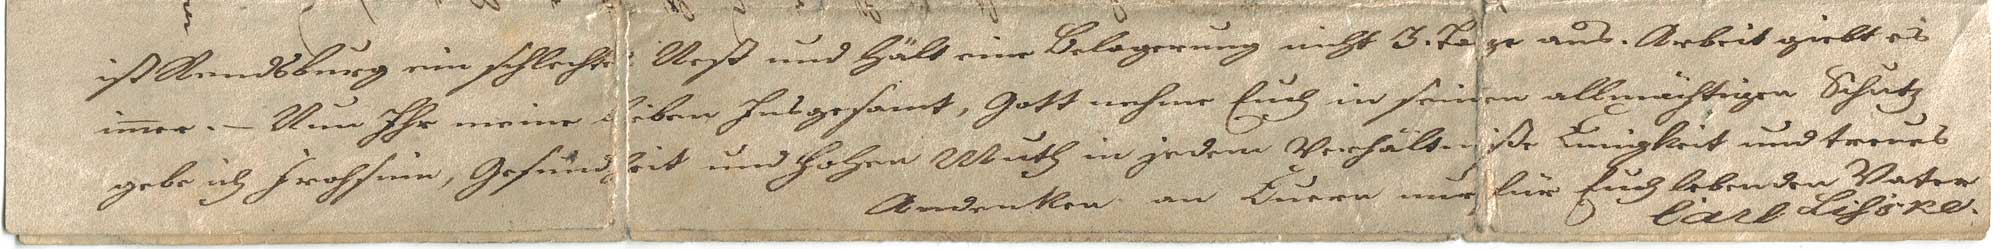 ist Rendsburg ein schlechtes Nest und hält eine Belagerung nicht 3. Tage aus. Arbeit giebt es
immer. – Nun Ihr meine Lieben Insgesamt, Gott nehme Euch in seinen allmächtigen Schutz
gebe ich Frohsinn, Gesundheit und hohen Muth in jedem Verhältniße Einigkeit und treues
Andenken an Euern nur für Euch lebenden Vater
Carl